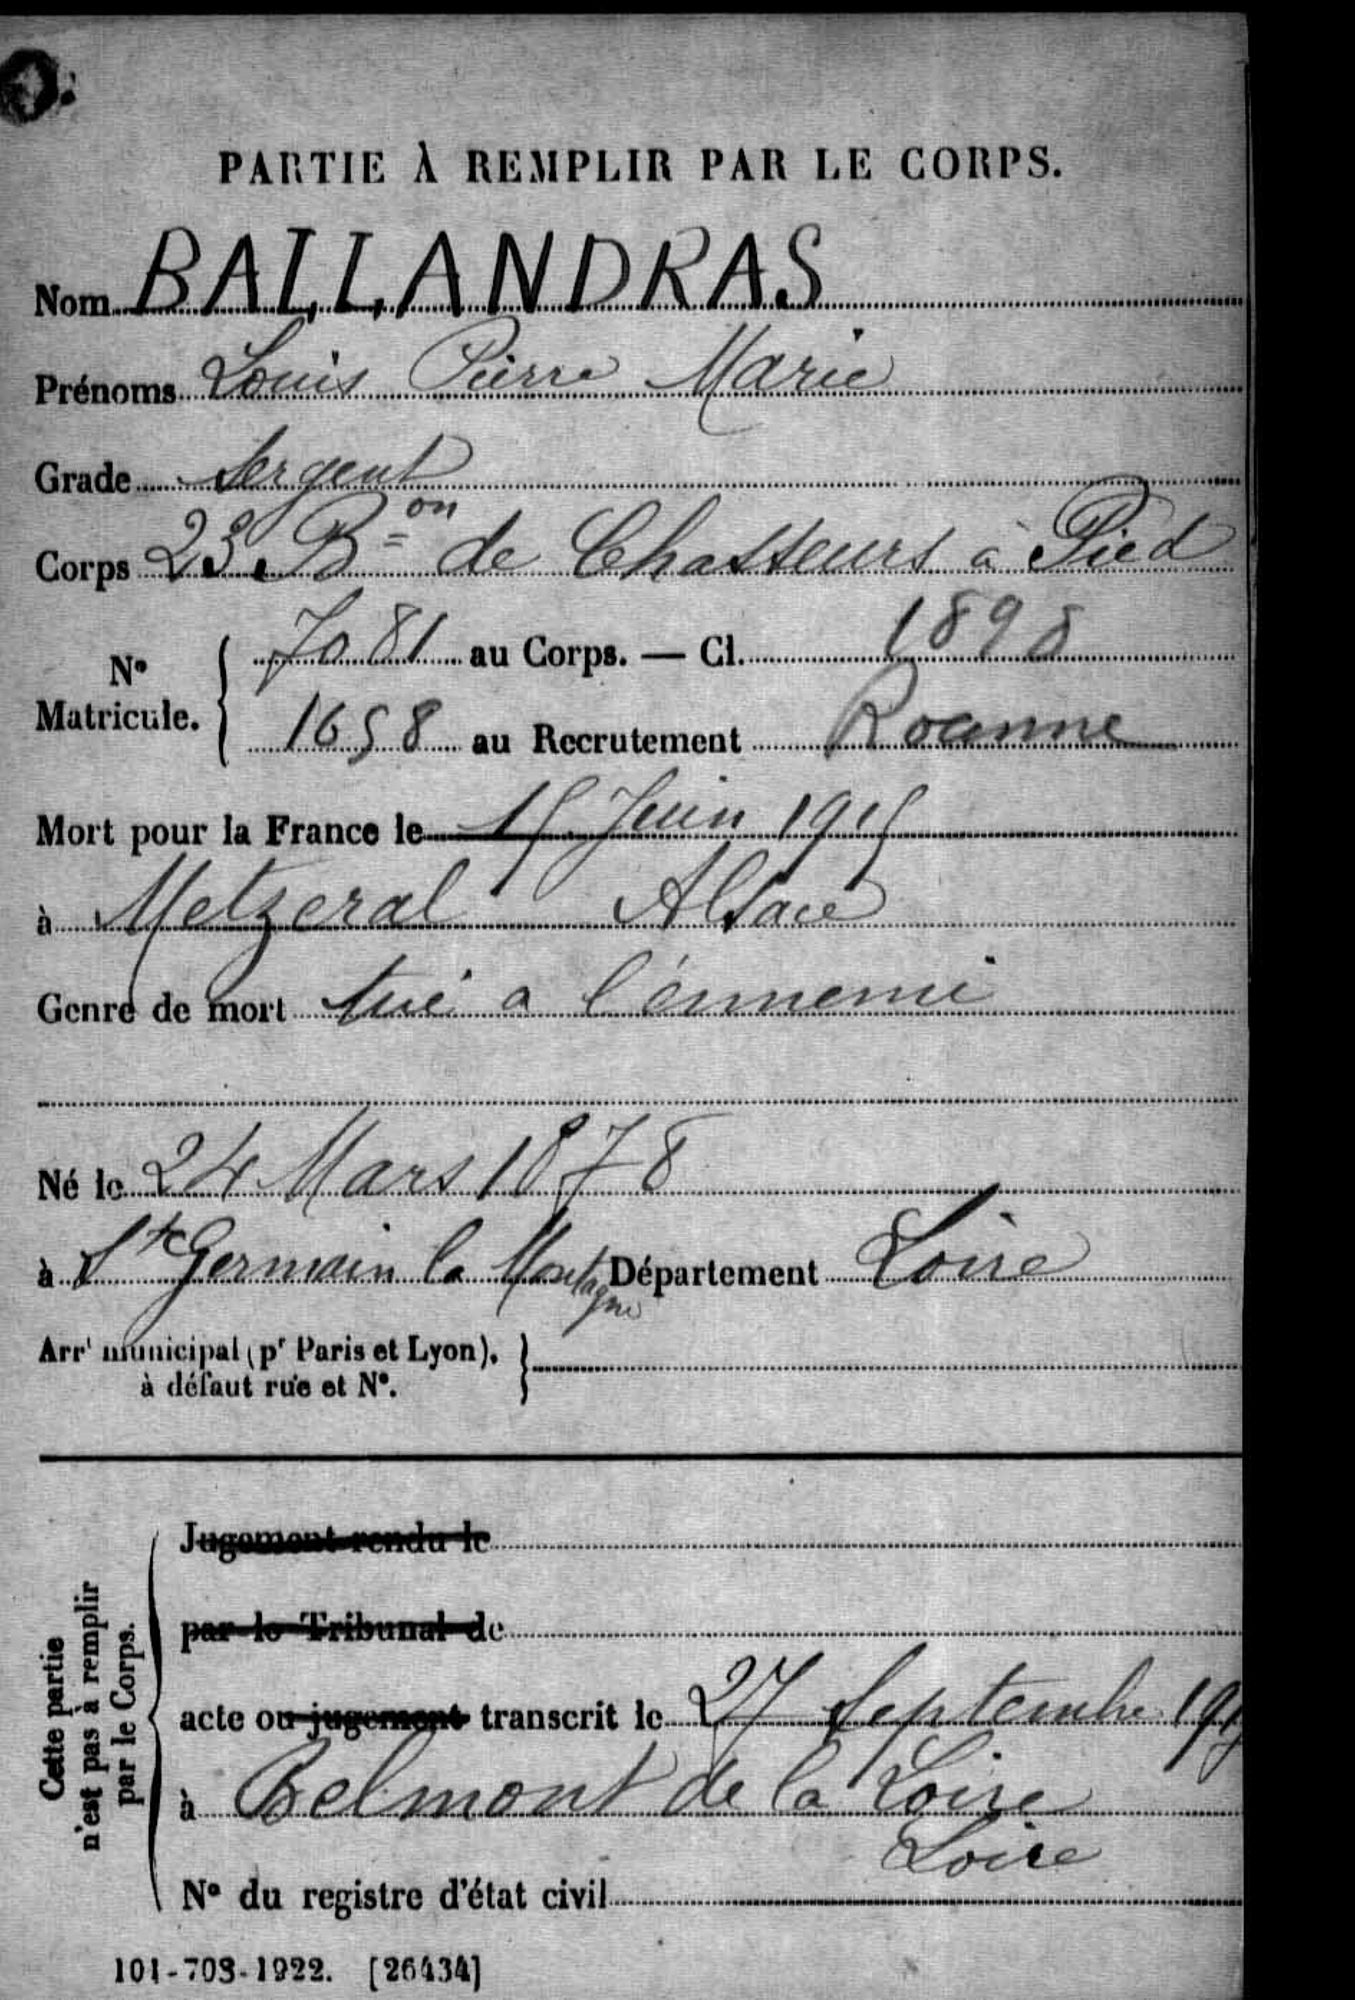 PARTIE À REMPLIR PAR LE CORPS.
Nom BALLANDRAS
Prénoms Louis Pierre Marie
Grade Sergent
Corps 23e Bon de Chasseurs à Pied
No Matricule. 7081 au Corps. — Cl. 1898
1658 au Recrutement Roanne
Mort pour la France le 15 Juin 1915
à Metzeral Alsace
Genre de mort tué a l'énnemi
Né le 24 Mars 1878
à St Germain la Montagne Département Loire
Arrt municipal (pr Paris et Lyon),
à défaut rue et No.
Cette partie
n'est pas à remplir
par le Corps.
Jugement rendu le
par le Tribunal de
acte ou jugement transcrit le 27 Septembre
à Belmont de la Loire
Loire
No du registre d'état civil
101-708-1922. [26434]